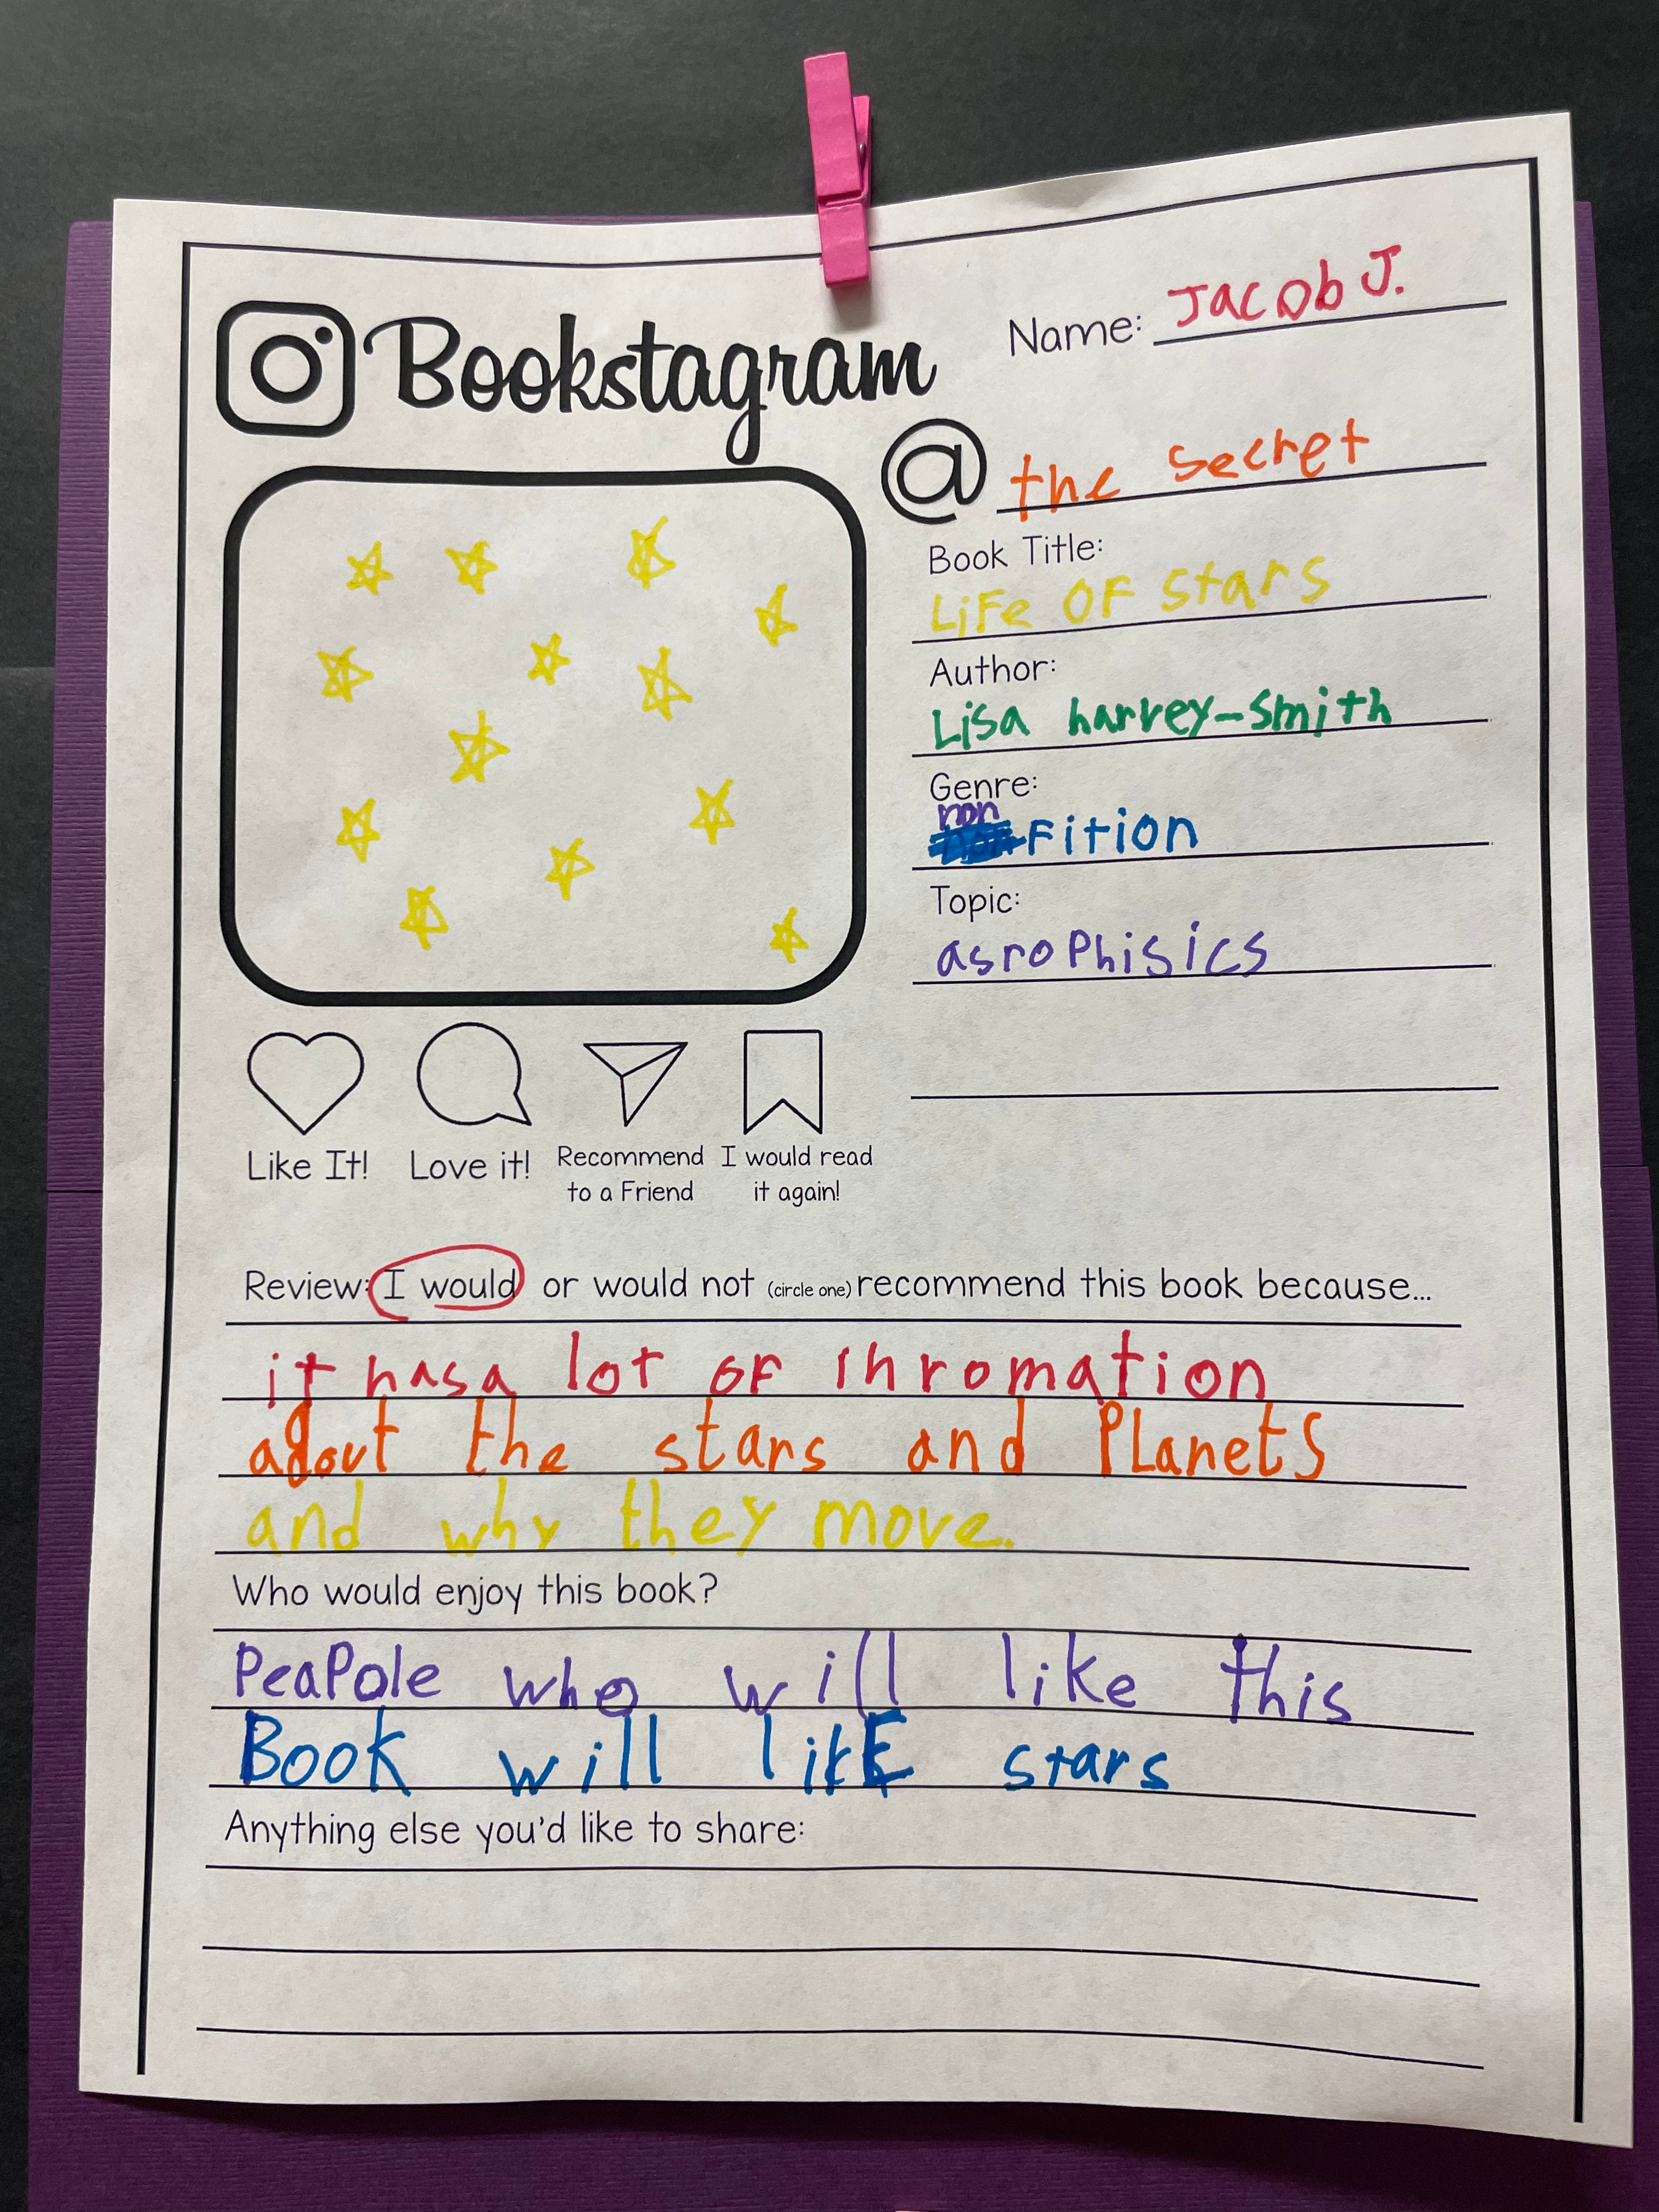 Bookstagram
Name: Jacob J.
@ the secret
Book Title:
Life OF stars
Author:
Lisa harvey-Smith
Genre:
non
Fition
Topic:
asroPhisics
Like It!
Love it!
Recommend
to a Friend
I would read
it again!
Review: I would or would not (circle one) recommend this book because...
it has a lot oF ihromation
adout the stars and PLanets
and why they move.
Who would enjoy this book?
PeaPole who will like this
Book will likE stars
Anything else you'd like to share: